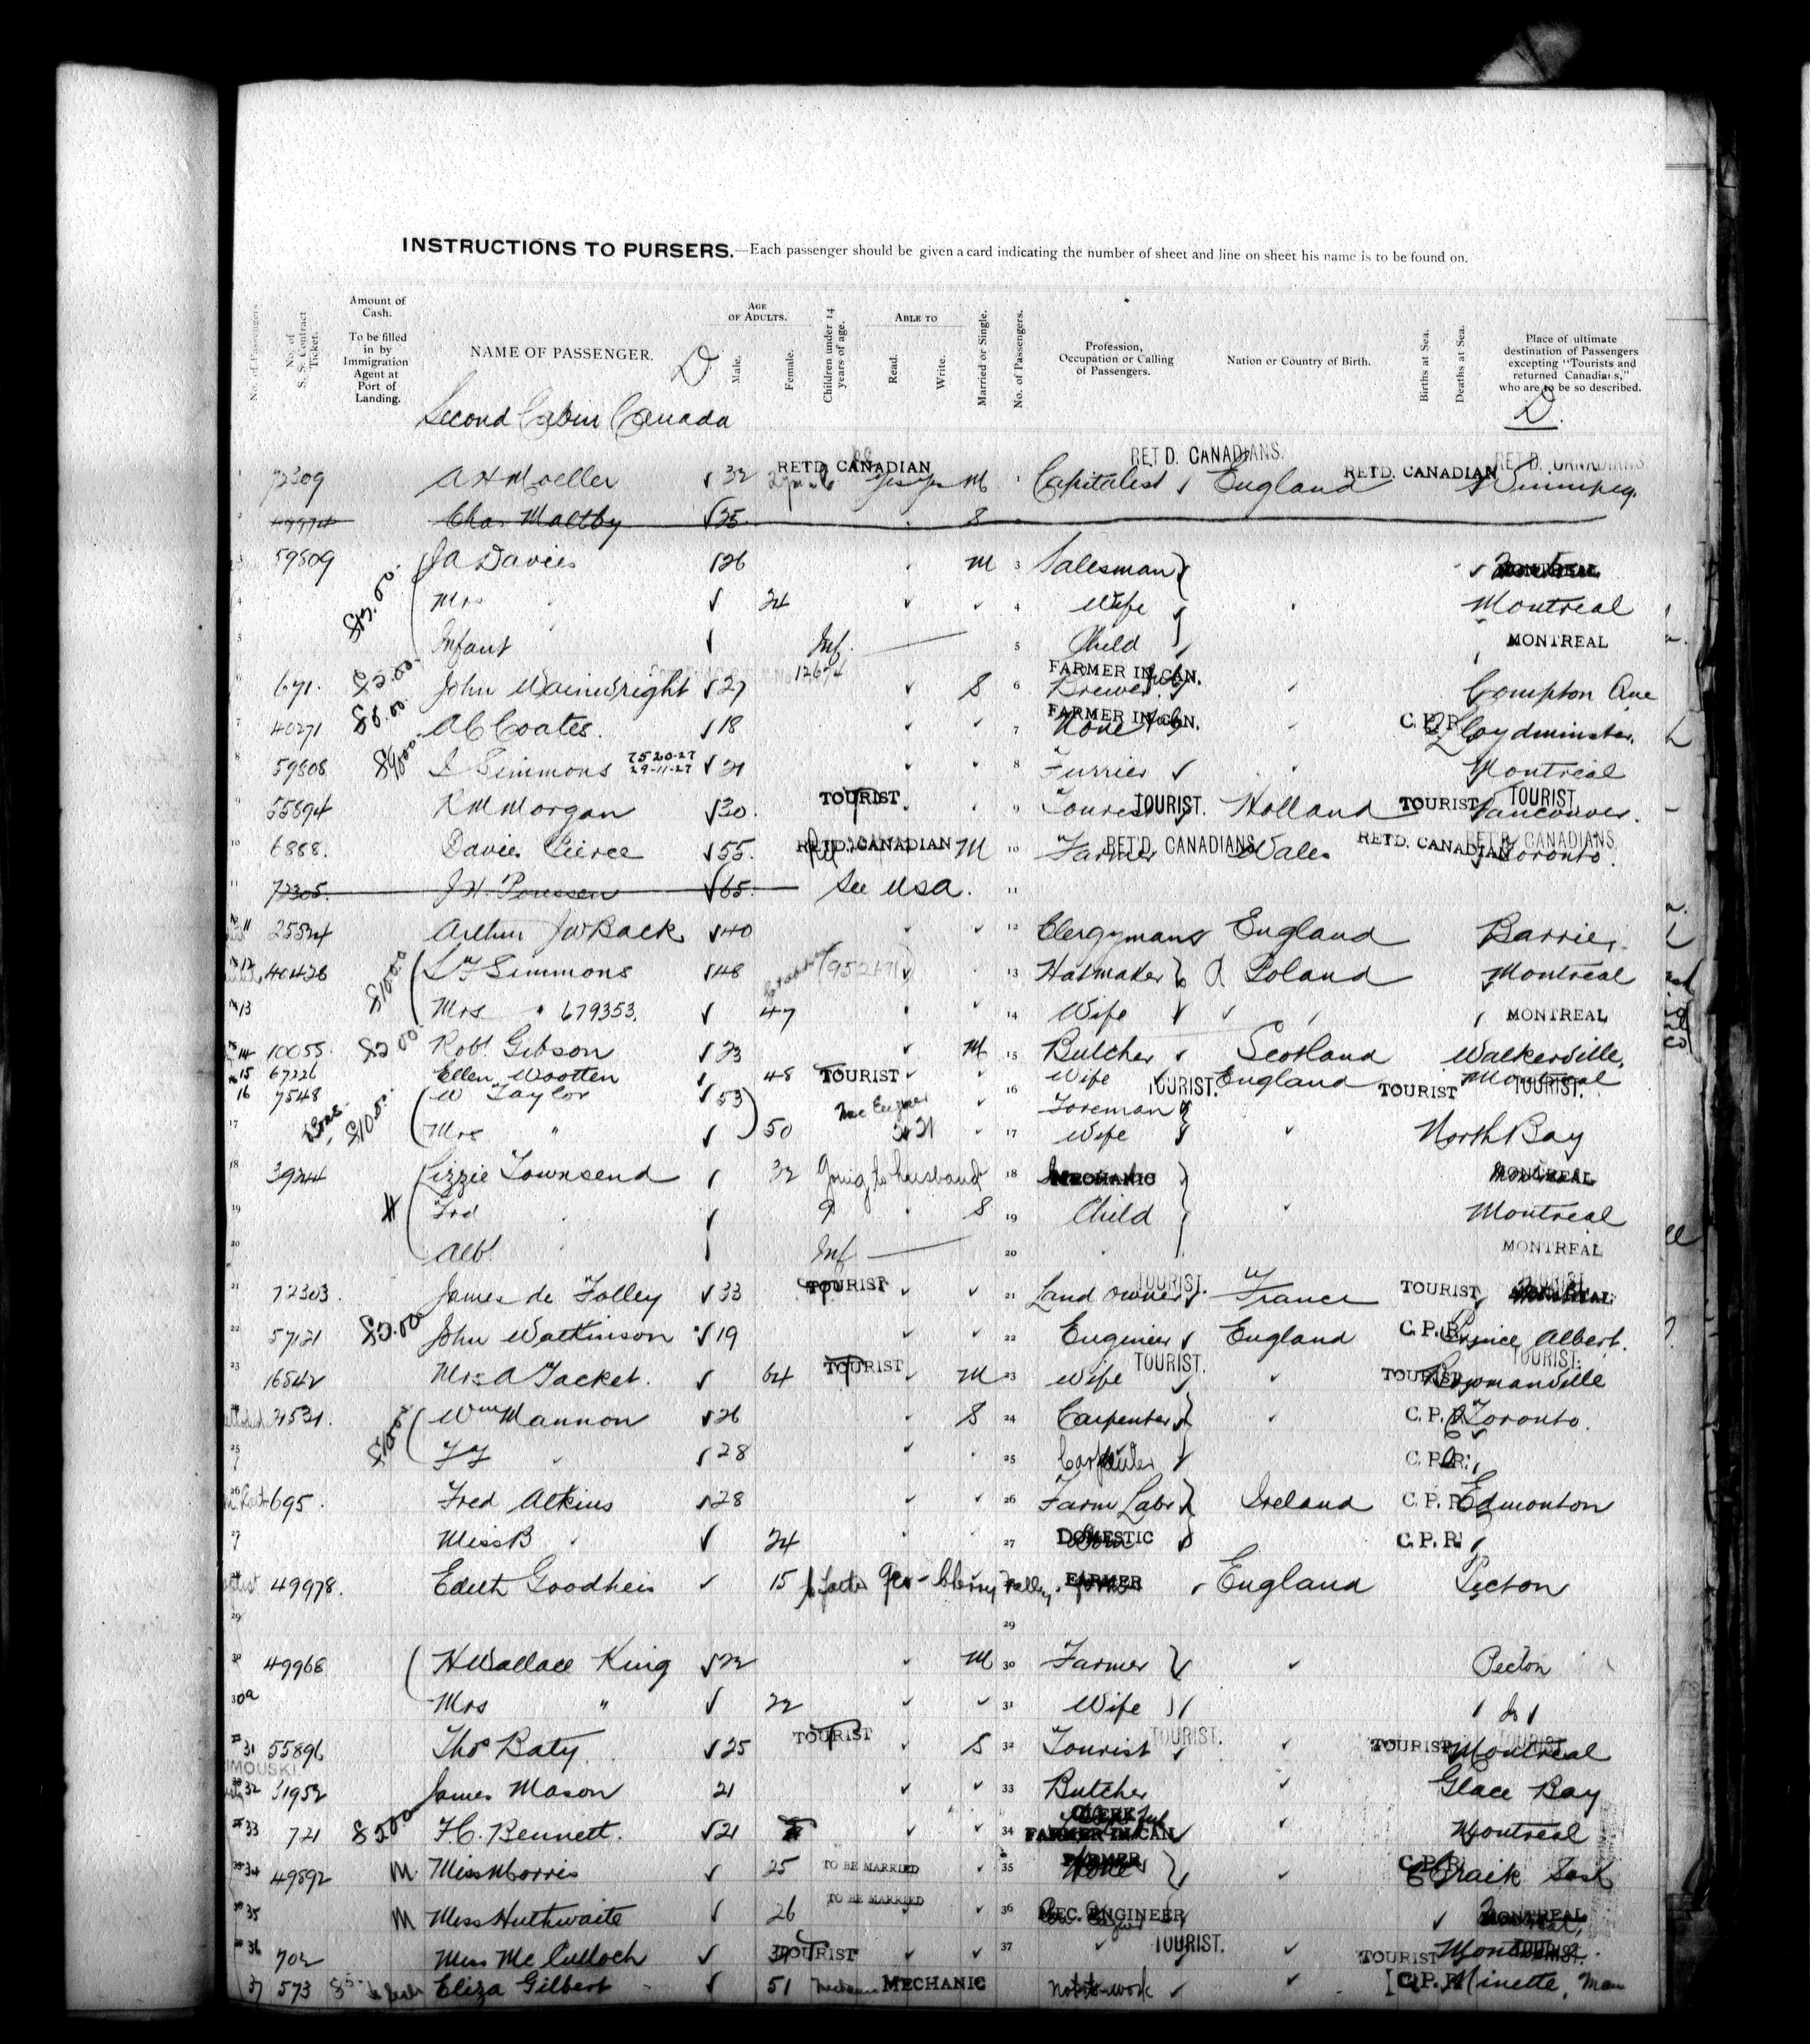 INSTRUCTIONS TO PURSERS.—Each passenger should be given a card indicating the number of sheet and line on sheet his name is to be found on.
No. of Passengers. No. of S. S. Contract Ticket. Amount of Cash. To be filled in by Immigration Agent at Port of Landing. NAME OF PASSENGER. D AGE OF ADULTS. Male. Female. Children under 14 years of age. ABLE TO Read. Write. Married or Single. No. of Passengers. Profession, Occupation or Calling of Passengers. Nation or Country of Birth. Births at Sea. Deaths at Sea. Place of ultimate destination of Passengers excepting "Tourists and returned Canadians," who are to be so described. D.
Second Cabin Canada
1 72309 A H Moeller 32 RETD. CANADIAN Yes Yes M 1 Capitalist RET D. CANADIANS. England RETD. CANADIAN RET D. CANADIANS Winnipeg.
2 Chas Maltby 25 S
3 59509 J A Davies 26 M 3 Salesman MONTREAL
4 Mrs " 24 4 Wife Montreal
5 Infant Inf. 5 Child MONTREAL
6 671. $5.00 John Wainwright 27 12674 S 6 FARMER IN CAN. Brewer Compton Que
7 40271 $6.00 A C Coates. 18 7 FARMER IN CAN. None C. P. R. Lloydminster.
8 59508 I Simmons 7520-27 29-11-27 21 8 Furrier Montreal
9 55894 R M Morgan 30. TOURIST. 9 Tourist TOURIST. Holland TOURIST TOURIST. Vancouver.
10 6888. Davies Pierce 55. RETD. CANADIAN M 10 Farmer RET'D. CANADIANS Wales RETD. CANADIAN RET'D. CANADIANS Toronto.
11 72305. 65. See USA. 11
11 25524 Arthur J W Back 40 12 Clergyman England Barrie,
12 40428 $100.0 L F Simmons 48 (952171) 13 Hatmaker Poland Montreal
13 Mrs " 679353. 47 14 Wife MONTREAL
14 10055. $2.00 Robt Gibson 23 M 15 Butcher Scotland Walkerville,
15 67226 Ellen Wootten 48 TOURIST Wife TOURIST. England TOURIST Montreal TOURIST.
16 7548 $10.00. W Taylor 53 16 Foreman
17 Mrs " 50 17 Wife North Bay
18 3924 Lizzie Townsend 32 Going to husband 18 MECHANIC MONTREAL
19 Frd 9 S 19 Child Montreal
20 Albt Inf 20 MONTREAL
21 72303. James de Folley 33 TOURIST 21 Land owner TOURIST. France TOURIST TOURIST.
22 57121 $5.00 John Watkinson 19 22 Engineer England C. P. R. Prince Albert.
23 16542 Mrs A Tacket. 64 TOURIST M 23 Wife TOURIST. TOURIST TOURIST. Bowmanville
24 31531. Wm Mannon 26 S 24 Carpenter C. P. R. Toronto.
25 28 25 Carpenter C. P. R.
26 695. Fred Atkins 28 26 Farm Labr Ireland C. P. R. Edmonton
27 Miss B 24 27 DOMESTIC C. P. R.
49978. Edith Goodheir 15 to father Geo - Cherry Valley. FARMER England Picton
29 29
30 49968 H Wallace King 22 M 30 Farmer Picton
30a Mrs " 22 31 Wife Do
31 55896 Thos Baty 25 TOURIST S 32 Tourist TOURIST. TOURIST Montreal TOURIST.
32 31952 James Mason 21 33 Butcher Glace Bay
33 721 $5.00 F C. Bennett. 21 34 CLERK FARMER IN CAN. Montreal
34 49892 M. Miss Morris 25 TO BE MARRIED 35 FARMER None C. P. R. Craik Sask
35 M Miss Huthwaite 26 TO BE MARRIED 36 MEC. ENGINEER MONTREAL
36 702 Miss Mc Culloch TOURIST 37 TOURIST. TOURIST Montreal TOURIST.
37 573 Eliza Gilbert 51 MECHANIC not to work C. P. R. Minette, Man